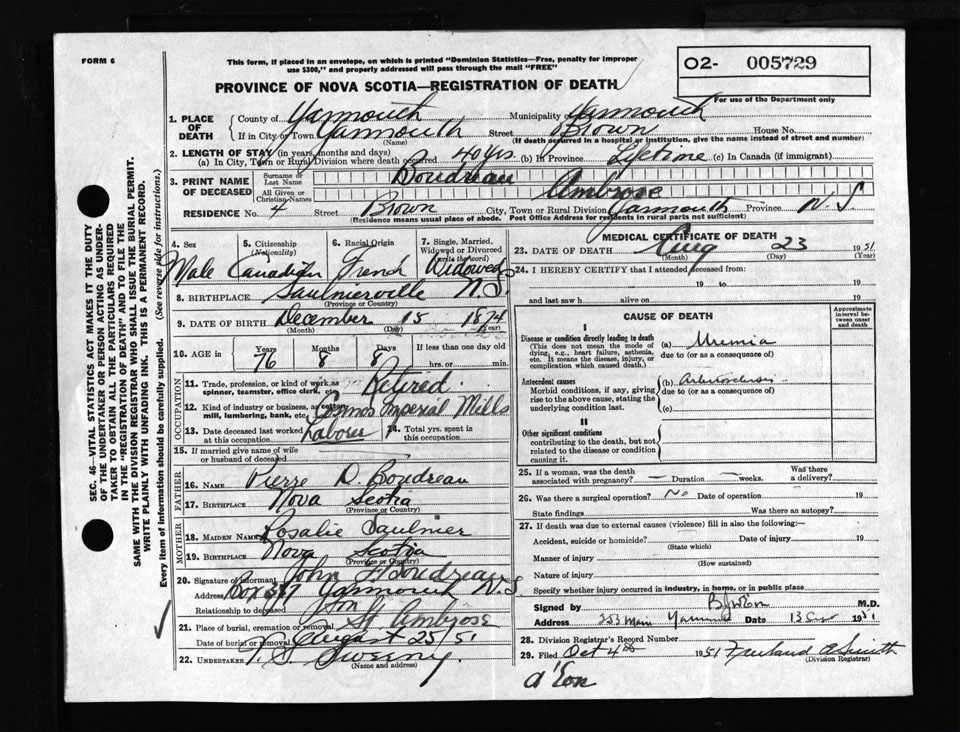 FORM 6
This form, if placed in an envelope, on which is printed "Dominion Statistics—Free, penalty for improper
use $300," and properly addressed will pass through the mail "FREE"
PROVINCE OF NOVA SCOTIA—REGISTRATION OF DEATH
02- 005729
For use of the Department only
SEC. 46—VITAL STATISTICS ACT MAKES IT THE DUTY
OF THE UNDERTAKER OR PERSON ACTING AS UNDER-
TAKER TO OBTAIN ALL THE PARTICULARS REQUIRED
IN THE "REGISTRATION OF DEATH" AND TO FILE THE
SAME WITH THE DIVISION REGISTRAR WHO SHALL ISSUE THE BURIAL PERMIT.
WRITE PLAINLY WITH UNFADING INK. THIS IS A PERMANENT RECORD.
Every item of information should be carefully supplied. (See reverse side for instructions.)
1. PLACE OF DEATH County of Yarmouth Municipality of Yarmouth
If in City or Town Yarmouth Street Brown House No.
(Name) (If death occurred in a hospital or institution, give the name instead of street and number)
2. LENGTH OF STAY (in years, months and days)
(a) In City, Town or Rural Division where death occurred 40 yrs. (b) In Province Lifetime (c) In Canada (if immigrant)
3. PRINT NAME OF DECEASED Surname or Last Name Boudreau
All Given or Christian Names Ambrose
RESIDENCE No. 4 Street Brown City, Town or Rural Division Yarmouth Province N.S.
(Residence means usual place of abode. Post Office Address for residents in rural parts not sufficient)
4. Sex Male
5. Citizenship (Nationality) Canadian
6. Racial Origin French
7. Single, Married, Widowed or Divorced (write the word) Widowed
8. BIRTHPLACE Saulnierville N.S.
(Province or Country)
9. DATE OF BIRTH December 15 1874
(Month) (Day) (Year)
10. AGE in Years 76 Months 8 Days 8 If less than one day old
hrs. or min.
OCCUPATION
11. Trade, profession, or kind of work as spinner, teamster, office clerk, etc. Retired
12. Kind of industry or business, as cotton mill, lumbering, bank, etc. Cosmos Imperial Mills
13. Date deceased last worked at this occupation Laborer 14. Total yrs. spent in this occupation
15. If married give name of wife or husband of deceased
FATHER
16. NAME Pierre D. Boudreau
17. BIRTHPLACE Nova Scotia
(Province or Country)
MOTHER
18. MAIDEN NAME Rosalie Saulnier
19. BIRTHPLACE Nova Scotia
(Province or Country)
20. Signature of informant John Boudreau
Address Box 547 Yarmouth N.S.
Relationship to deceased Son
21. Place of burial, cremation or removal St. Ambrose
Date of burial or removal August 25/51
22. UNDERTAKER Sweeny
(Name and address)
MEDICAL CERTIFICATE OF DEATH
23. DATE OF DEATH Aug 23 1951
(Month) (Day) (Year)
24. I HEREBY CERTIFY that I attended deceased from
19 to 19
and last saw h alive on 19
CAUSE OF DEATH
Approximate interval between onset and death
I
Disease or condition directly leading to death (a) Uremia
(This does not mean the mode of dying, e.g., heart failure, asthenia, etc. It means the disease, injury, or complication which caused death.)
due to (or as a consequence of)
Antecedent causes (b)
Morbid conditions, if any, giving rise to the above cause, stating the underlying condition last.
due to (or as a consequence of)
(c)
II
Other significant conditions
contributing to the death, but not related to the disease or condition causing it.
25. If a woman, was the death associated with pregnancy? — Duration — weeks. Was there a delivery? —
26. Was there a surgical operation? No Date of operation 19
State findings Was there an autopsy?
27. If death was due to external causes (violence) fill in also the following:—
Accident, suicide or homicide? Date of injury 19
(State which)
Manner of injury
(How sustained)
Nature of injury
Specify whether injury occurred in industry, in home, or in public place
Signed by M.D.
Address 253 Main Yarmouth Date 13 Sep 1951
28. Division Registrar's Record Number
29. Filed Oct 4th 1951 Smith
(Division Registrar)
d'Eon